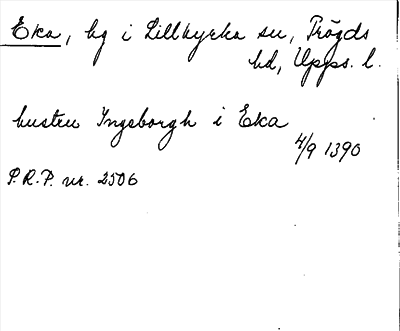 Eka, bg i Lillkyrka sn, Trögds
hd, Upps. l.
hustru Ingeborgh i Eka
4/9 1390
P.R.P. nr. 2506